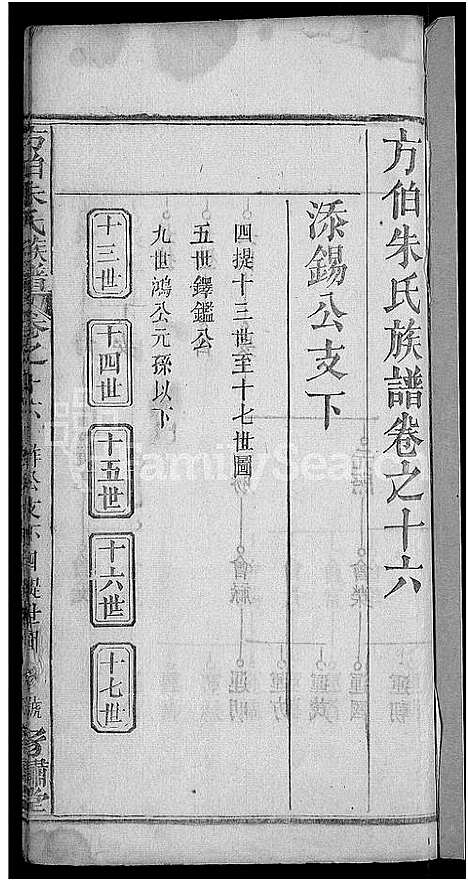 方伯朱氏族譜卷之十六
添錫公支下
四提十三世至十七世圖
五世鐸鑑公
九世鴻公元孫以下
十三世
十四世
十五世
十六世
十七世
方伯朱氏族譜
卷之十六
公支下四提世圖
FamilySearch